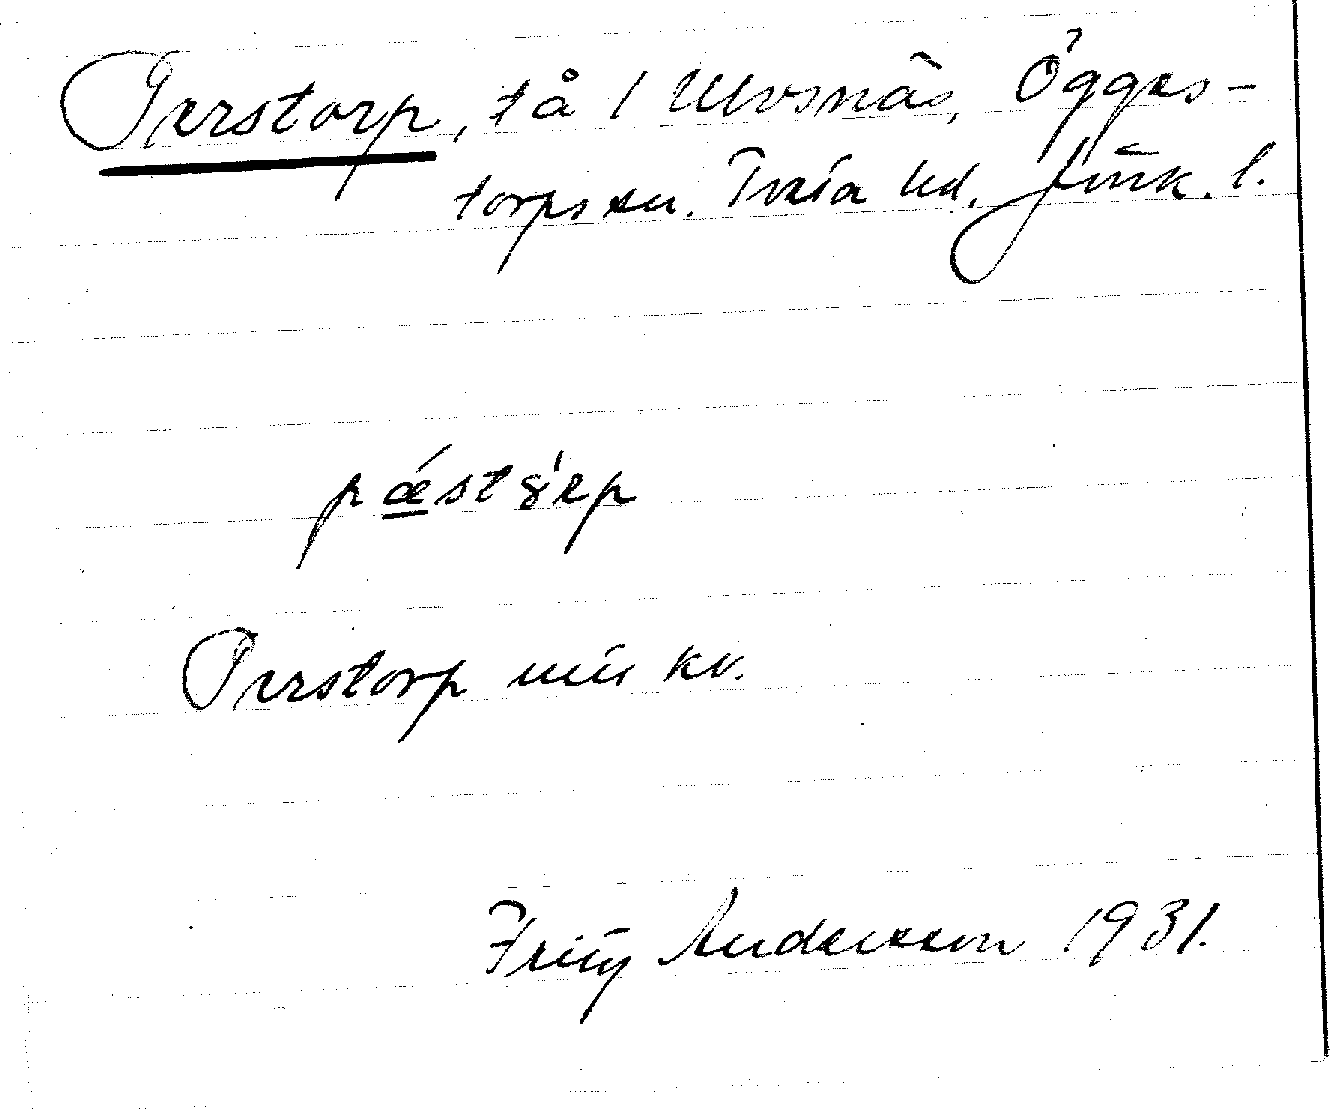 Perstorp, tå / Ulvsnäs, Ögges-
torps sn. Tveta hd. Jönk. l.
pǽstꞛ̍rp
Perstorp min kv.
Fritz Andersson 1931.